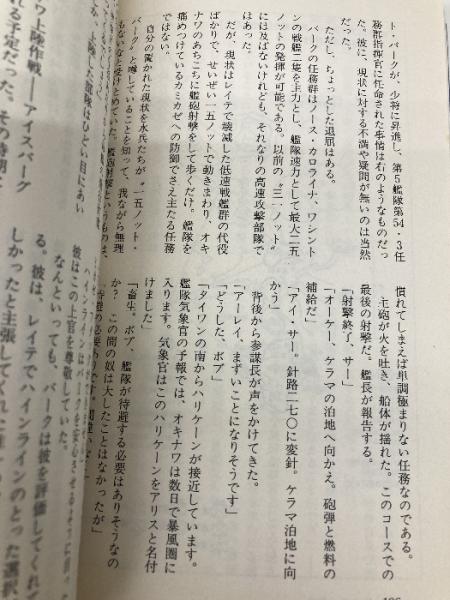 ト・バークが、少将に昇進し、第5艦隊第54・3任
務群指揮官に任命された事情は右のようなものだっ
た。彼に、現状に対する不満や疑問が無いのは当然
だった。
だが、ちょっとした退屈はある。
バークの任務群はノース・カロライナ、ワシント
ンの戦艦二隻を主力とし、艦隊速力として最大二五
ノットの発揮が可能である。以前の〝三一ノット〟
には及ばないけれども、それなりの高速攻撃部隊で
はあった。
だが、現状はレイテで壊滅した低速戦艦群の代役
ばかりで、せいぜい一五ノットで動きまわり、オキ
ナワのあちこちに艦砲射撃をして歩くだけ。艦隊を
痛めつけているカミカゼへの防御でさえ主たる任務
ではない。
自分の置かれた現状を水兵たちが〝一五ノット・
バーク〟と噂していることを知って、我ながら無理
もないなと受けとめていた。艦砲射撃というものは、
慣れてしまえば単調極まりない任務なのである。
主砲が火を吐き、船体が揺れた。このコースでの
最後の射撃だ。艦長が報告する。
「射撃終了、サー」
「オーケー、ケラマの泊地へ向かえ。砲弾と燃料の
補給だ」
「アイ・サー。針路二七〇に変針。ケラマ泊地に向
かう」
背後から参謀長が声をかけてきた。
「アーレイ、まずいことになりそうです」
「どうした、ボブ」
「タイワンの南からハリケーンが接近しています。
艦隊気象官の予報では、オキナワは数日で暴風圏に
入ります。気象官はこのハリケーンをアリスと名付
けました」
「畜生。ボブ、艦隊が待避する必要はありそうなの
か？　この間の奴は大したことはなかったが」
彼はこの上官を尊敬していた。
なんといっても、バークは彼を評価してくれて
る。彼は、レイテでハインラインのとった選択
しかったと主張してくれた
ワ上陸作戦「アイスバーグ
れる予定だった。その時期